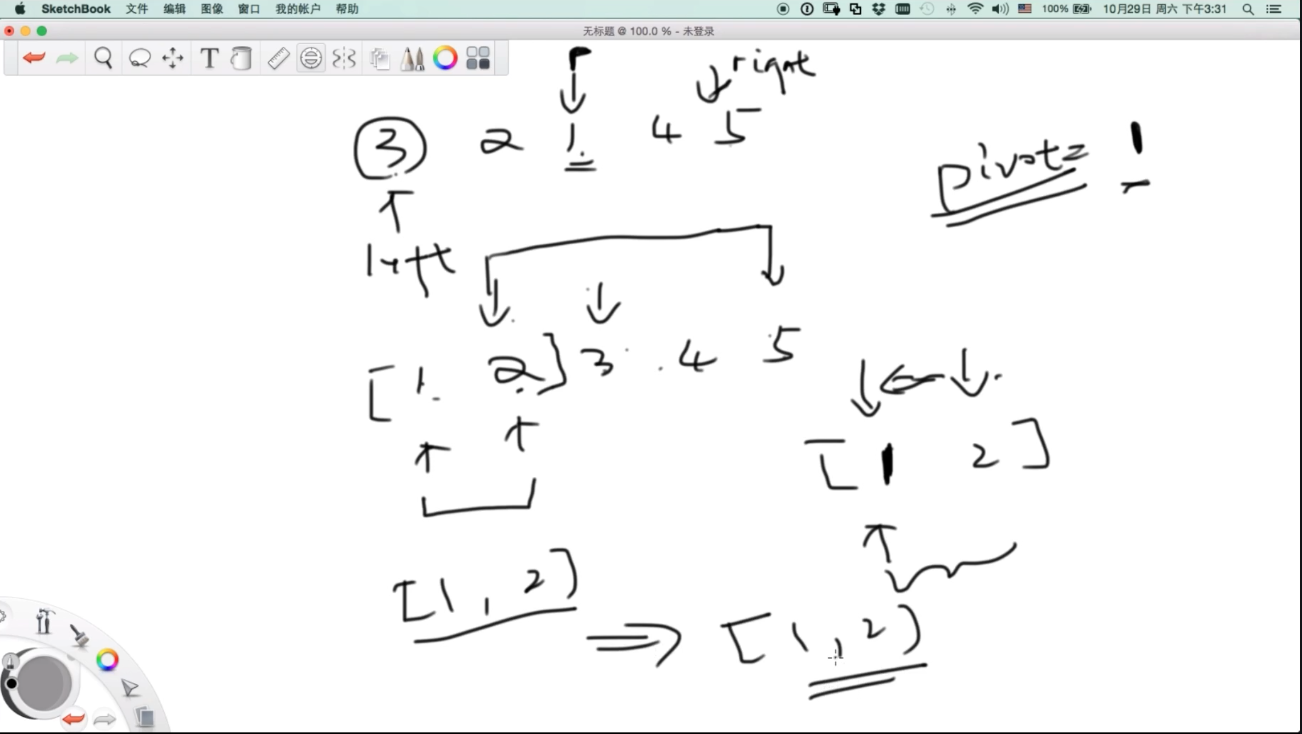 SketchBook 文件 编辑 图像 窗口 我的帐户 帮助 100% 10月29日 周六 下午3:31
无标题 @ 100.0 % - 未登录
T
r
right
3 2 1 4 5
pivot = 1
left
[1 2] 3 4 5
[1 2]
[1, 2]
[1, 2]